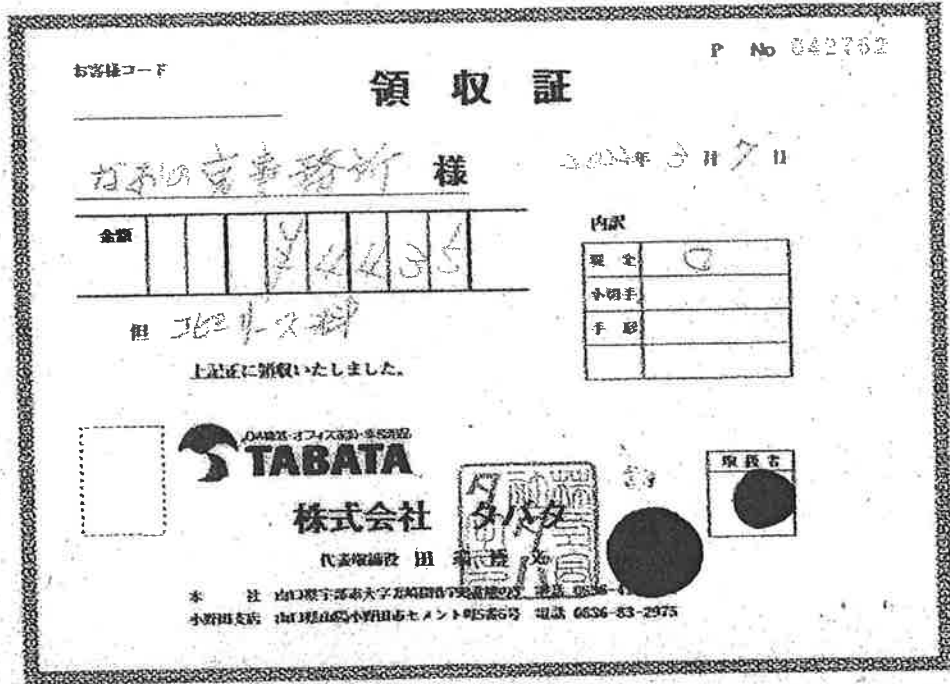 P No 042762
お客様コード
領収証
事務所 様
3月7日
金額 ¥4435
内訳
現金
小切手
手形
但 コピーリース料
上記正に領収いたしました。
OA機器・オフィス家具・事務用品
TABATA
株式会社 タバタ
取扱者
代表取締役 田
本社 山口県宇部市大字 電話 0836-4
小野田支店 山口県山陽小野田市セメント町5番6号 電話 0836-83-2975